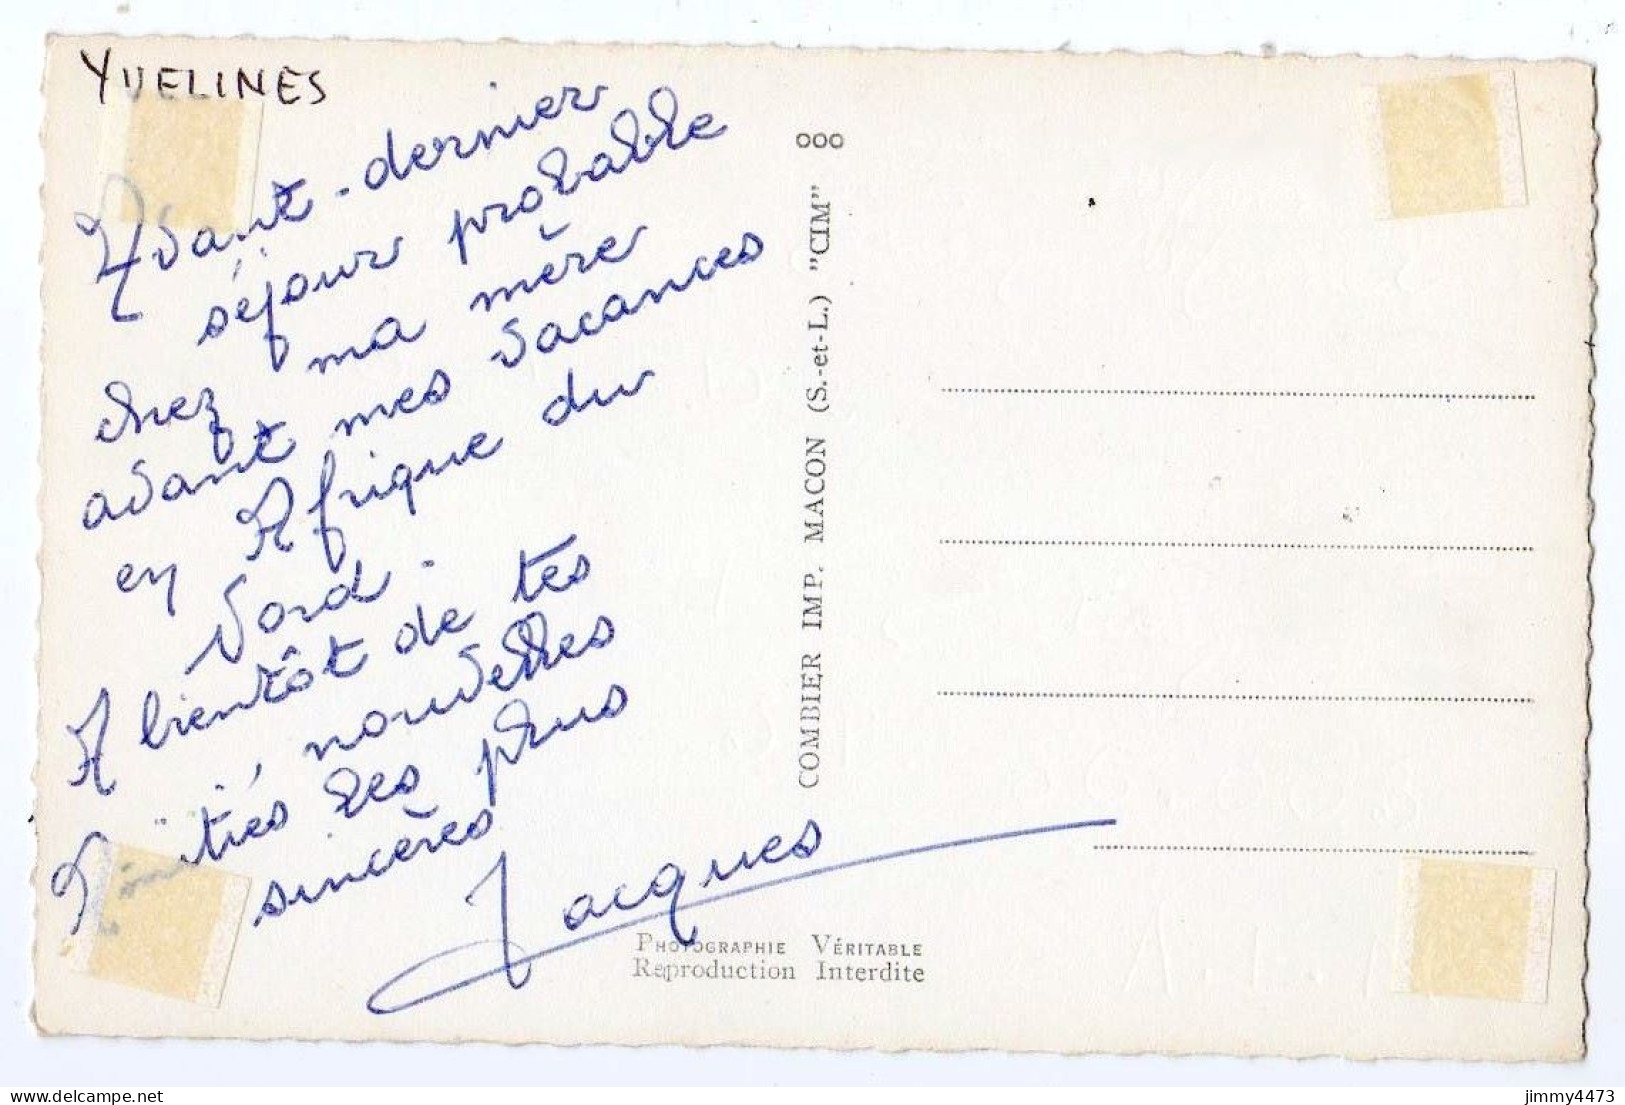 YVELINES
Avant-dernier
séjour probable
chez ma mère
avant mes vacances
en Afrique du
Nord.
A bientôt de tes
nouvelles
Amitiés les plus
sincères
Jacques
ooo
COMBIER IMP. MACON (S.-et-L.) "CIM"
PHOTOGRAPHIE VÉRITABLE
Reproduction Interdite
delcampe.net
jimmy4473